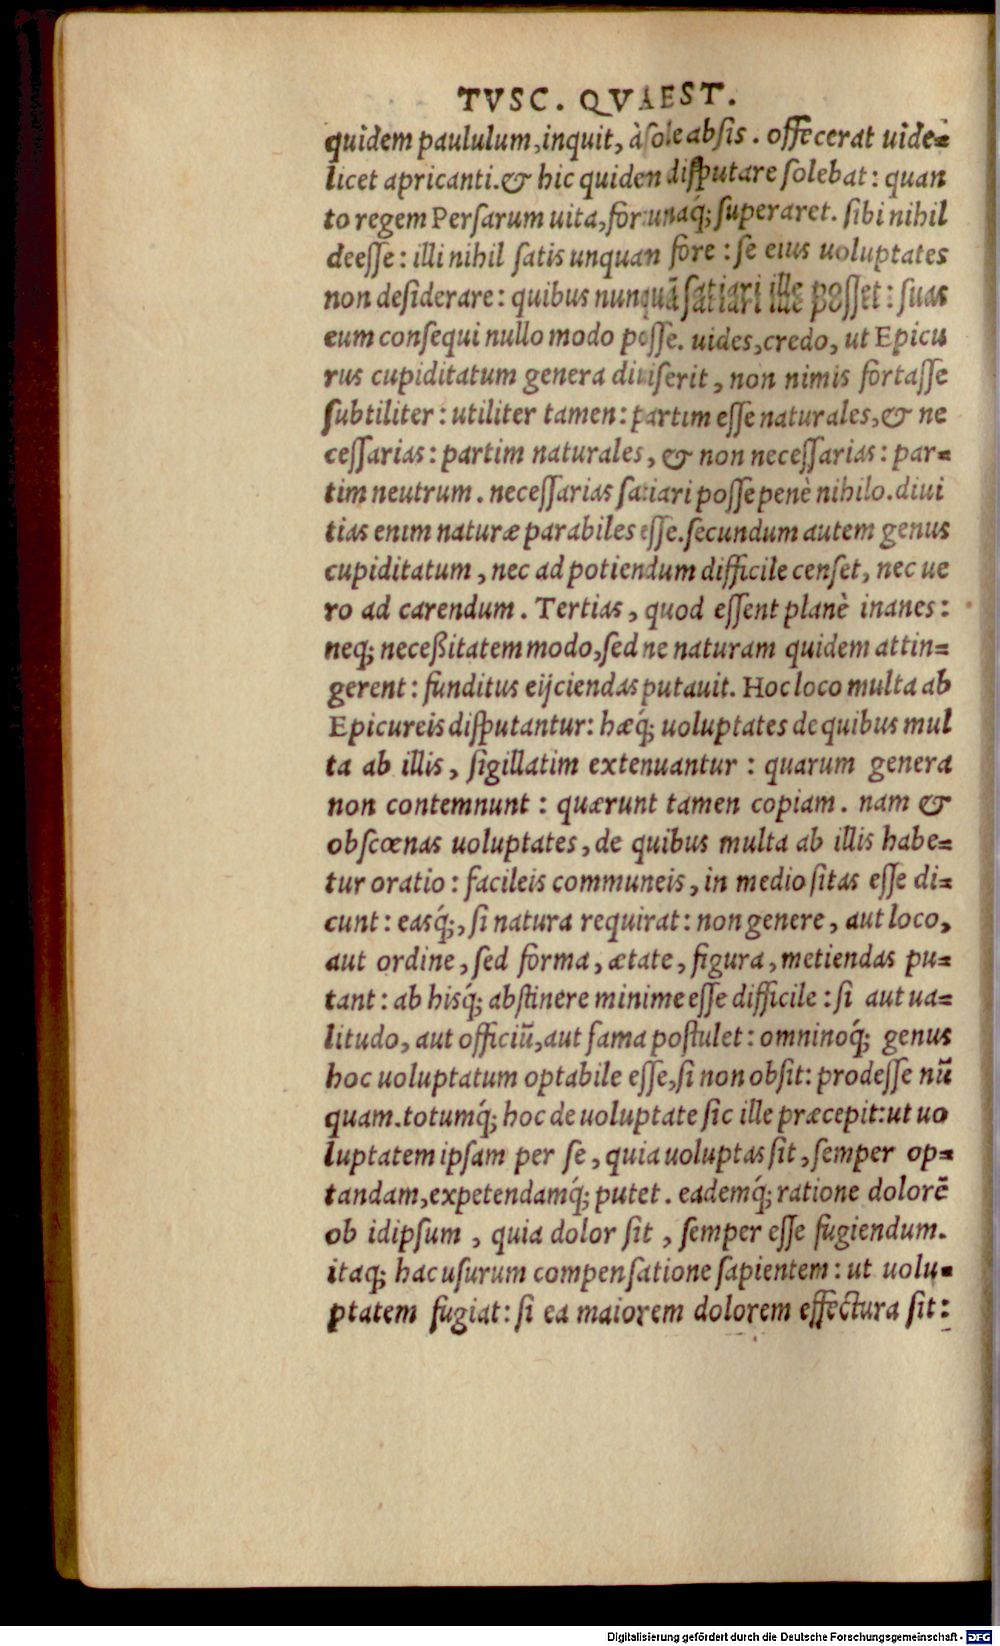 TVSC. QVAEST.
quidem paululum, inquit, à sole absis. offecerat uide-
licet apricanti. & hic quidem disputare solebat: quan
to regem Persarum uita, fortunaq́; superaret. sibi nihil
deesse: illi nihil satis unquam fore: se eius uoluptates
non desiderare: quibus nunquā satiari ille posset: suas
eum consequi nullo modo posse. uides, credo, ut Epicu
rus cupiditatum genera diuiserit, non nimis fortasse
subtiliter: utiliter tamen: partim esse naturales, & ne
cessarias: partim naturales, & non necessarias: par-
tim neutrum. necessarias satiari posse penè nihilo. diui
tias enim naturæ parabiles esse. secundum autem genus
cupiditatum, nec ad potiendum difficile censet, nec ue
ro ad carendum. Tertias, quod essent planè inanes:
neq; neceßitatem modo, sed ne naturam quidem attin-
gerent: funditus eijciendas putauit. Hoc loco multa ab
Epicureis disputantur: hæq́; uoluptates de quibus mul
ta ab illis, sigillatim extenuantur: quarum genera
non contemnunt: quærunt tamen copiam. nam &
obscœnas uoluptates, de quibus multa ab illis habe-
tur oratio: facileis communeis, in medio sitas esse di-
cunt: easq́;, si natura requirat: non genere, aut loco,
aut ordine, sed forma, ætate, figura, metiendas pu-
tant: ab hisq́; abstinere minime esse difficile: si aut ua-
litudo, aut officiū, aut fama postulet: omninoq́; genus
hoc uoluptatum optabile esse, si non obsit: prodesse nū
quam. totumq́; hoc de uoluptate sic ille præcepit: ut uo
luptatem ipsam per se, quia uoluptas sit, semper op-
tandam, expetendamq́; putet. eademq́; ratione dolorē
ob idipsum, quia dolor sit, semper esse fugiendum.
itaq; hac usurum compensatione sapientem: ut uolu-
ptatem fugiat: si ea maiorem dolorem effectura sit:
Digitalisierung gefördert durch die Deutsche Forschungsgemeinschaft - DFG